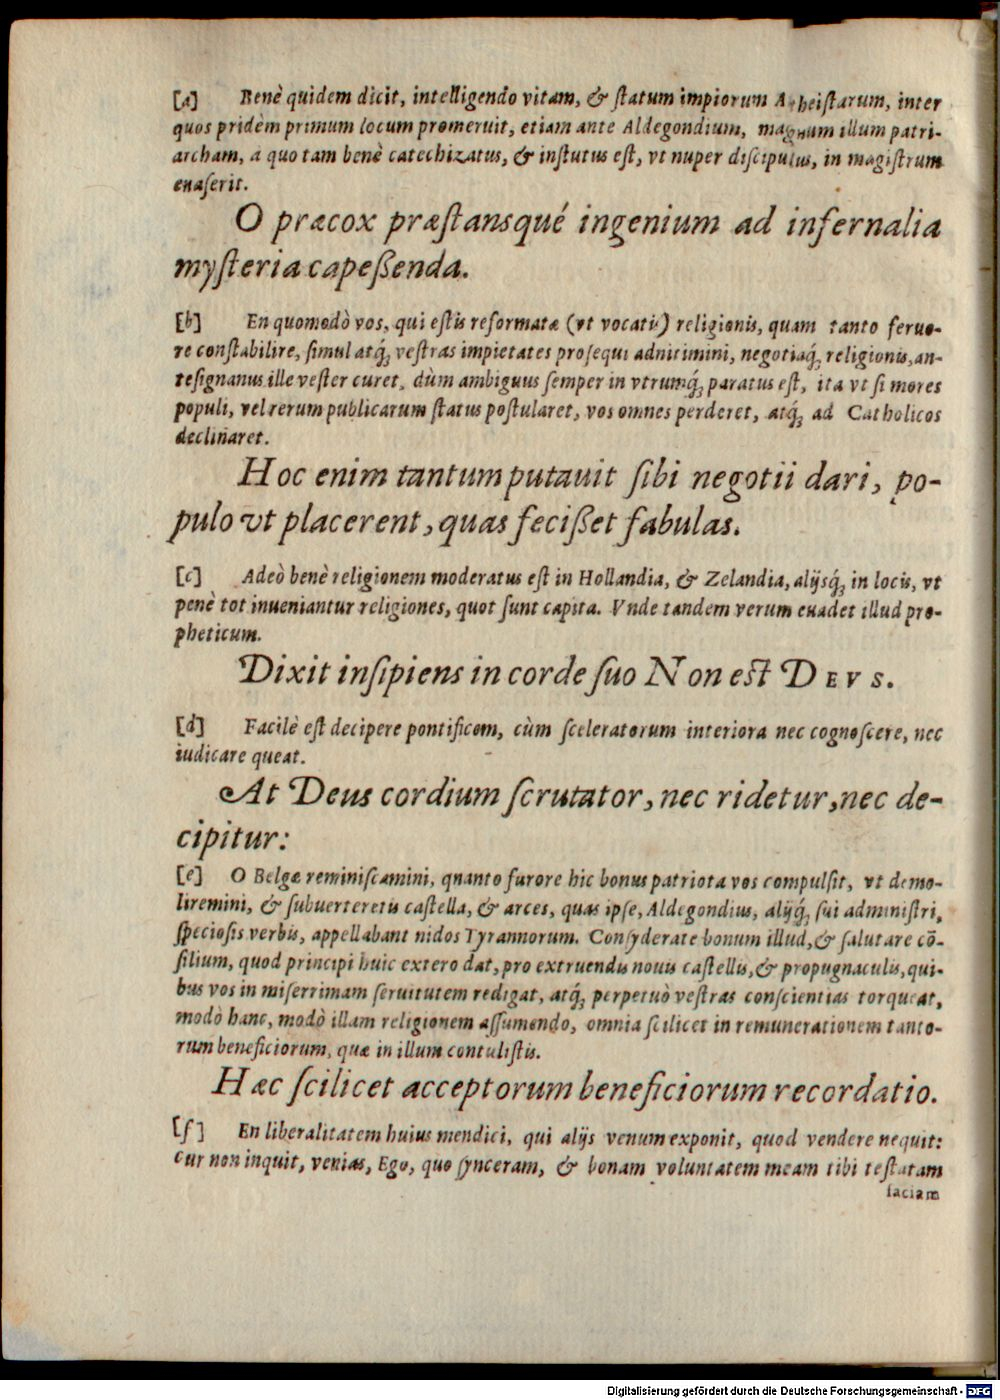 [a] Benè quidem dicit, intelligendo vitam, & ſtatum impiorum Atheiſtarum, inter
quos pridèm primum locum promeruit, etiam ante Aldegondium, magnum illum patri-
archam, a quo tam benè catechizatus, & inſtutus eſt, vt nuper diſcipulus, in magiſtrum
euaſerit.
O præcox præſtansqué ingenium ad infernalia
myſteria capeßenda.
[b] En quomodò vos, qui eſtis reformatæ (vt vocatis) religionis, quam tanto feruo-
re conſtabilire, ſimul atq́ꝫ veſtras impietates proſequi adnitimini, negotiaq́ꝫ religionis, an-
teſignanus ille veſter curet, dùm ambiguus ſemper in vtrumq́ꝫ paratus eſt, ita vt ſi mores
populi, vel rerum publicarum ſtatus poſtularet, vos omnes perderet, atq́ꝫ ad Catholicos
declinaret.
Hoc enim tantum putauit ſibi negotii dari, po-
pulo vt placerent, quas feciſßet fabulas.
[c] Adeò benè religionem moderatus eſt in Hollandia, & Zelandia, alijsq́ꝫ in locis, vt
penè tot inueniantur religiones, quot ſunt capita. Vnde tandem verum euadet illud pro-
pheticum.
Dixit inſipiens in corde ſuo Non eſt DEVS.
[d] Facilè eſt decipere pontificem, cùm ſceleratorum interiora nec cognoſcere, nec
iudicare queat.
At Deus cordium ſcrutator, nec ridetur, nec de-
cipitur:
[e] O Belgæ reminiſcamini, quanto furore hic bonus patriota vos compulſit, vt demo-
liremini, & ſubuerteretis caſtella, & arces, quas ipſe, Aldegondius, alijq́ꝫ ſui adminiſtri,
ſpecioſis verbis, appellabant nidos Tyrannorum. Conſyderate bonum illud, & ſalutare cō-
ſilium, quod principi huic extero dat, pro extruendis nouis caſtellis, & propugnaculis, qui-
bus vos in miſerrimam ſeruitutem redigat, atq́ꝫ perpetuò veſtras conſcientias torqueat,
modò hanc, modò illam religionem aſſumendo, omnia ſcilicet in remunerationem tanto-
rum beneficiorum, quæ in illum contuliſtis.
Hæc ſcilicet acceptorum beneficiorum recordatio.
[f] En liberalitatem huius mendici, qui alijs venum exponit, quod vendere nequit:
Cur non inquit, venias, Ego, quo ſynceram, & bonam voluntatem meam tibi teſtatam
faciam
Digitalisierung gefördert durch die Deutsche Forschungsgemeinschaft - DFG